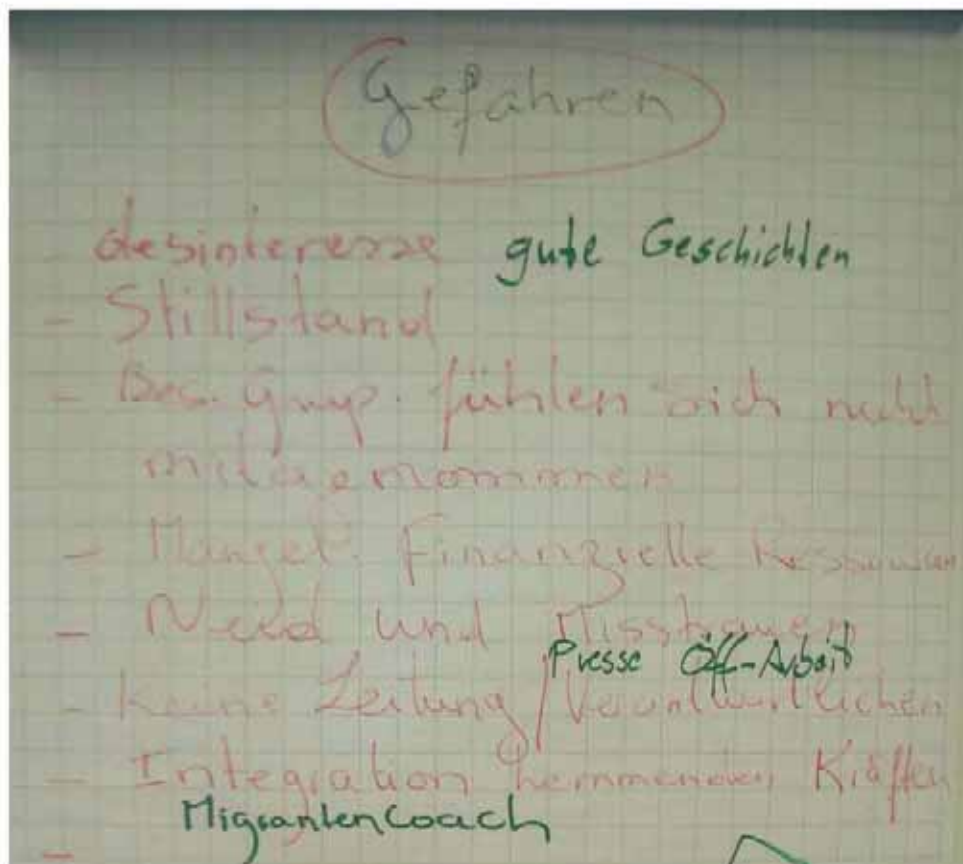 Gefahren
desinteresse gute Geschichten
- Stillstand
- Bes. Grup. fühlen sich nicht
mitgenommen
- Mangel. Finanzielle Ressourcen
- Neid und Misstrauen
Presse Öff-Arbeit
- Keine Zeitung / Verantwortlichen
- Integration hemmenden Kräften
Migranten Coach
-